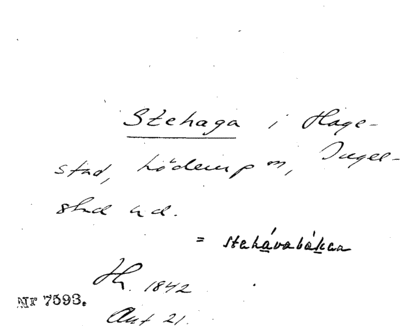 Stehaga i Hage-
stad, Löderup sn, Ingel-
stad hd.
= stehávabákan
Hh. 1842
Akt 21.
Nr 7593.